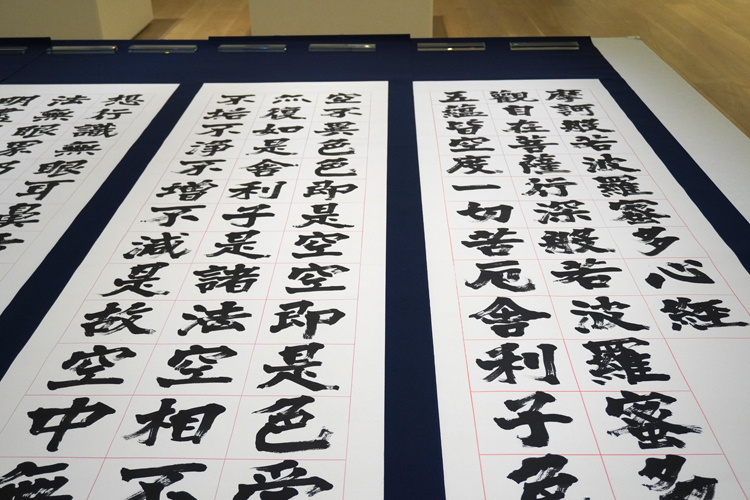 摩訶般若波羅蜜多心經
觀自在菩薩行深般若波羅蜜多
五蘊皆空度一切苦厄舍利子色
空不異色色即是空空即是色受
亦復如是舍利子是諸法空相不
不垢不淨不增不減是故空中無
想行識無眼耳鼻舌
法無眼界乃
明